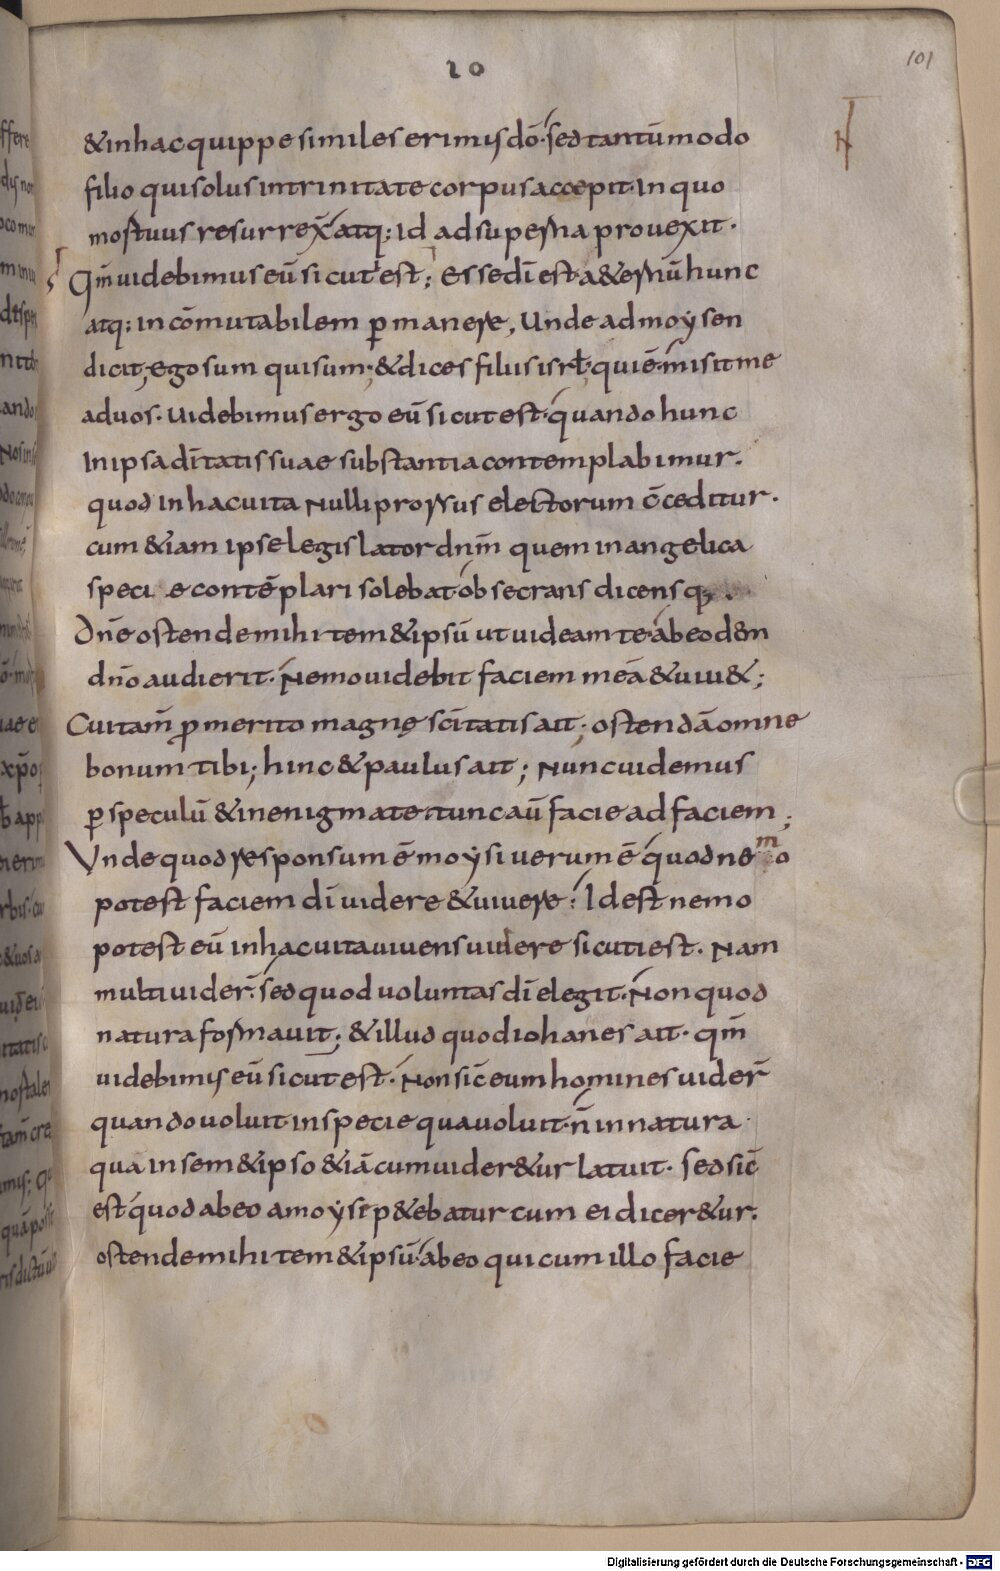 10
101
& in hac quippe similes erimus dō. sed tantū modo
filio qui solus in trinitate corpus accepit. In quo
mortuus resurrex̄ atq; id ad superna prouexit.
Qm̄ uidebimus eū sicut est; Esse dī est a&ernū hunc
atq; incōmutabilem ꝑmanere, Unde ad moysen
dicit, ego sum qui sum; & dices filiis isrł. qui ē. misit me
ad uos. Uidebimus ergo eū sicut est. quando hunc
In ipsa dītatis suae substantia contemplabimur.
quod in hac uita Nulli prorsus electorum c̄ceditur.
cum &iam ipse legislator dnm̄ quem in angelica
specie contēplari solebat obsecrans dicens q;.
Dn̄e ostende mihi tem&ipsū ut uideam te. ab eodem
dn̄o audierit. Nemo uidebit faciem meā & uiu&;
Cui tam̄ ꝓ merito magnę sc̄itatis ait; ostendā omne
bonum tibi; hinc & paulus ait; Nunc uidemus
ꝑ speculū & in enigmate. tunc aū facie ad faciem;
Vnde quod responsum ē moysi uerum ē quod nemo
potest faciem dī uidere & uiuere: Id est nemo
potest eū in hac uita uiuens uidere sicuti est. Nam
multi uider̄. sed quod uoluntas dī elegit. Non quod
natura formauit; & illud quod iohanes ait. qm̄
uidebimus eū sicut est. Non sic̄ eum homines uider̄
quando uoluit in specie qua uoluit. n̄ in natura
qua in sem&ipso &iā cum uider&ur latuit. sed sic̄
est quod ab eo a moyse p&ebatur cum ei dicer&ur.
ostende mihi tem&ipsū. ab eo qui cum illo facie
Digitalisierung gefördert durch die Deutsche Forschungsgemeinschaft - DFG